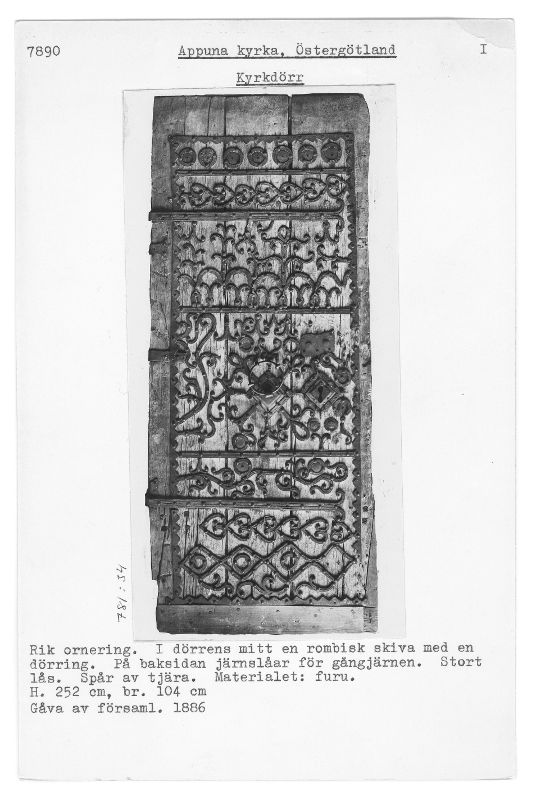 7890 Appuna kyrka, Östergötland I
Kyrkdörr
781:34
Rik ornering. I dörrens mitt en rombisk skiva med en
dörring. På baksidan järnslåar för gångjärnen. Stort
lås. Spår av tjära. Materialet: furu.
H. 252 cm, br. 104 cm
Gåva av församl. 1886